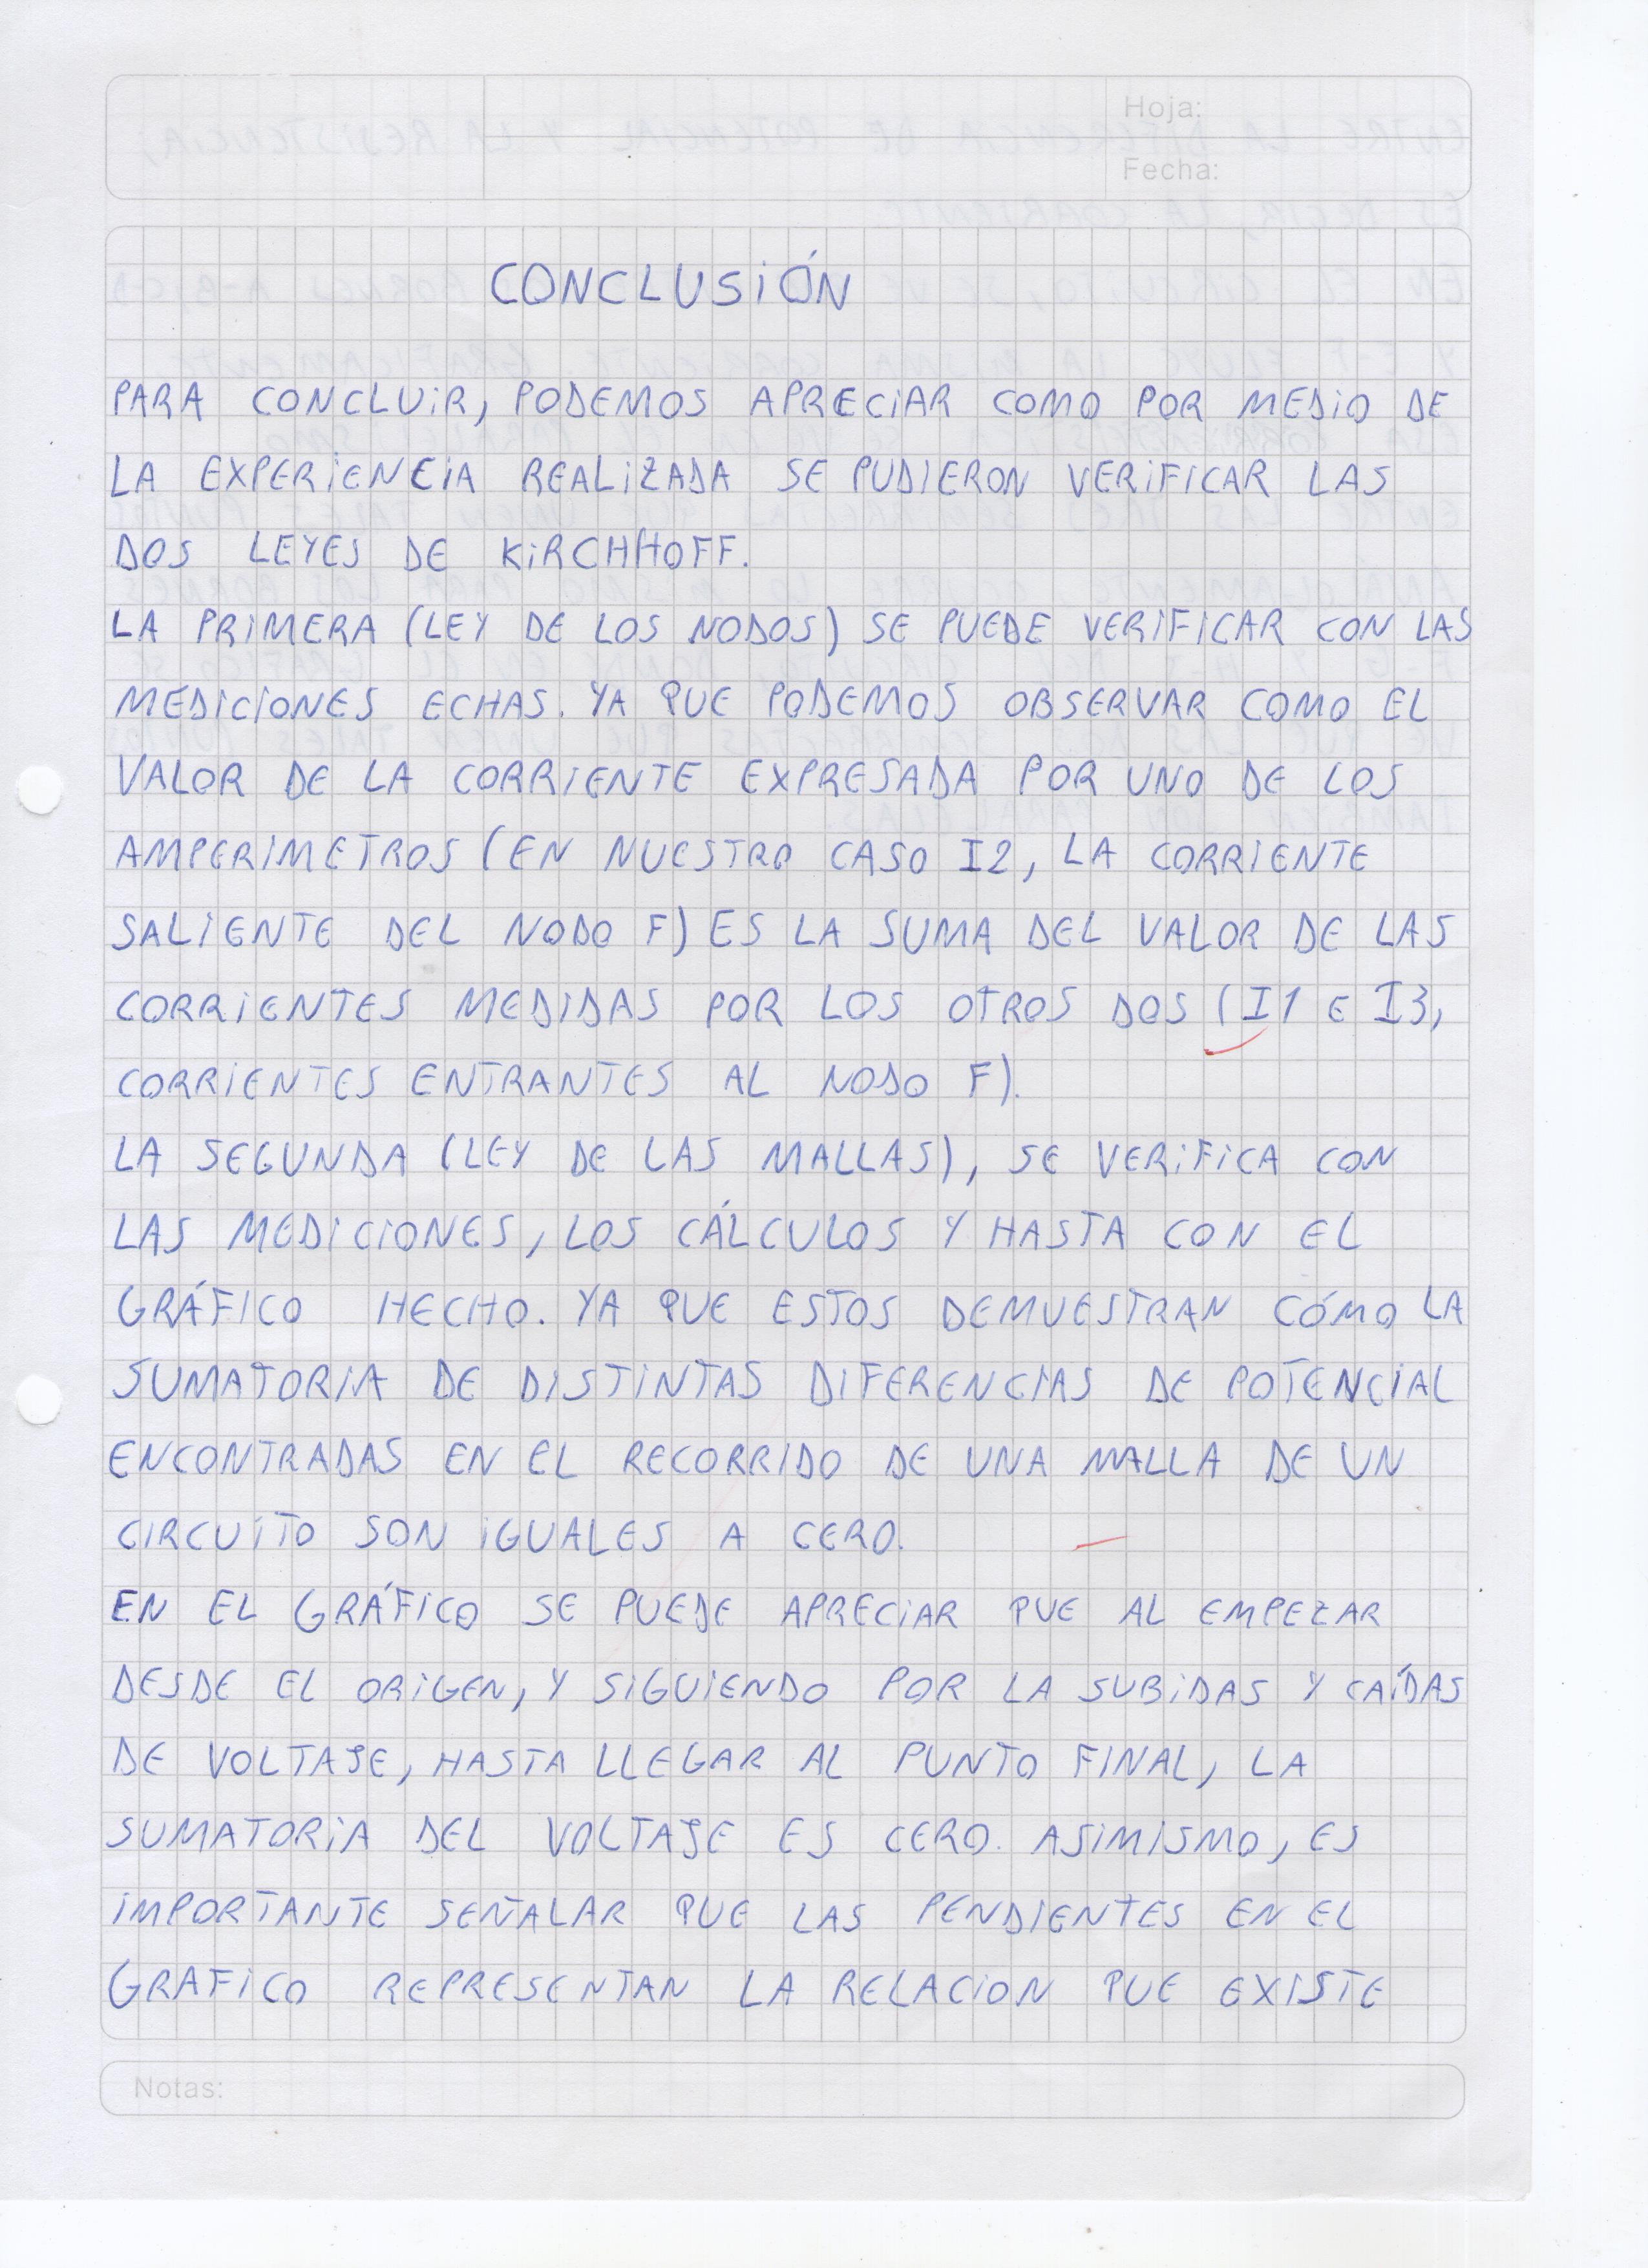 Hoja:
Fecha:
CONCLUSIÓN
PARA CONCLUIR, PODEMOS APRECIAR COMO POR MEDIO DE
LA EXPERIENCIA REALIZADA SE PUDIERON VERIFICAR LAS
DOS LEYES DE KIRCHHOFF.
LA PRIMERA (LEY DE LOS NODOS) SE PUEDE VERIFICAR CON LAS
MEDICIONES ECHAS. YA QUE PODEMOS OBSERVAR COMO EL
VALOR DE LA CORRIENTE EXPRESADA POR UNO DE LOS
AMPERIMETROS (EN NUESTRO CASO I2, LA CORRIENTE
SALIENTE DEL NODO F) ES LA SUMA DEL VALOR DE LAS
CORRIENTES MEDIDAS POR LOS OTROS DOS (I1 E I3,
CORRIENTES ENTRANTES AL NODO F).
LA SEGUNDA (LEY DE LAS MALLAS), SE VERIFICA CON
LAS MEDICIONES, LOS CÁLCULOS Y HASTA CON EL
GRÁFICO HECHO. YA QUE ESTOS DEMUESTRAN CÓMO LA
SUMATORIA DE DISTINTAS DIFERENCIAS DE POTENCIAL
ENCONTRADAS EN EL RECORRIDO DE UNA MALLA DE UN
CIRCUITO SON IGUALES A CERO.
EN EL GRÁFICO SE PUEDE APRECIAR QUE AL EMPEZAR
DESDE EL ORIGEN, Y SIGUIENDO POR LA SUBIDAS Y CAÍDAS
DE VOLTAJE, HASTA LLEGAR AL PUNTO FINAL, LA
SUMATORIA DEL VOLTAJE ES CERO. ASIMISMO, ES
IMPORTANTE SEÑALAR QUE LAS PENDIENTES EN EL
GRAFICO REPRESENTAN LA RELACION QUE EXISTE
Notas: